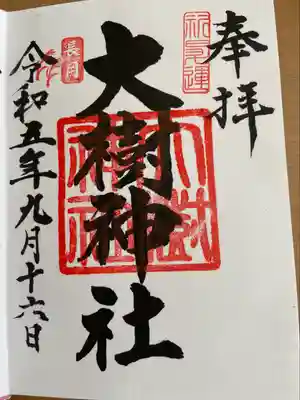 奉拝
大樹神社
令和五年九月十六日
長月